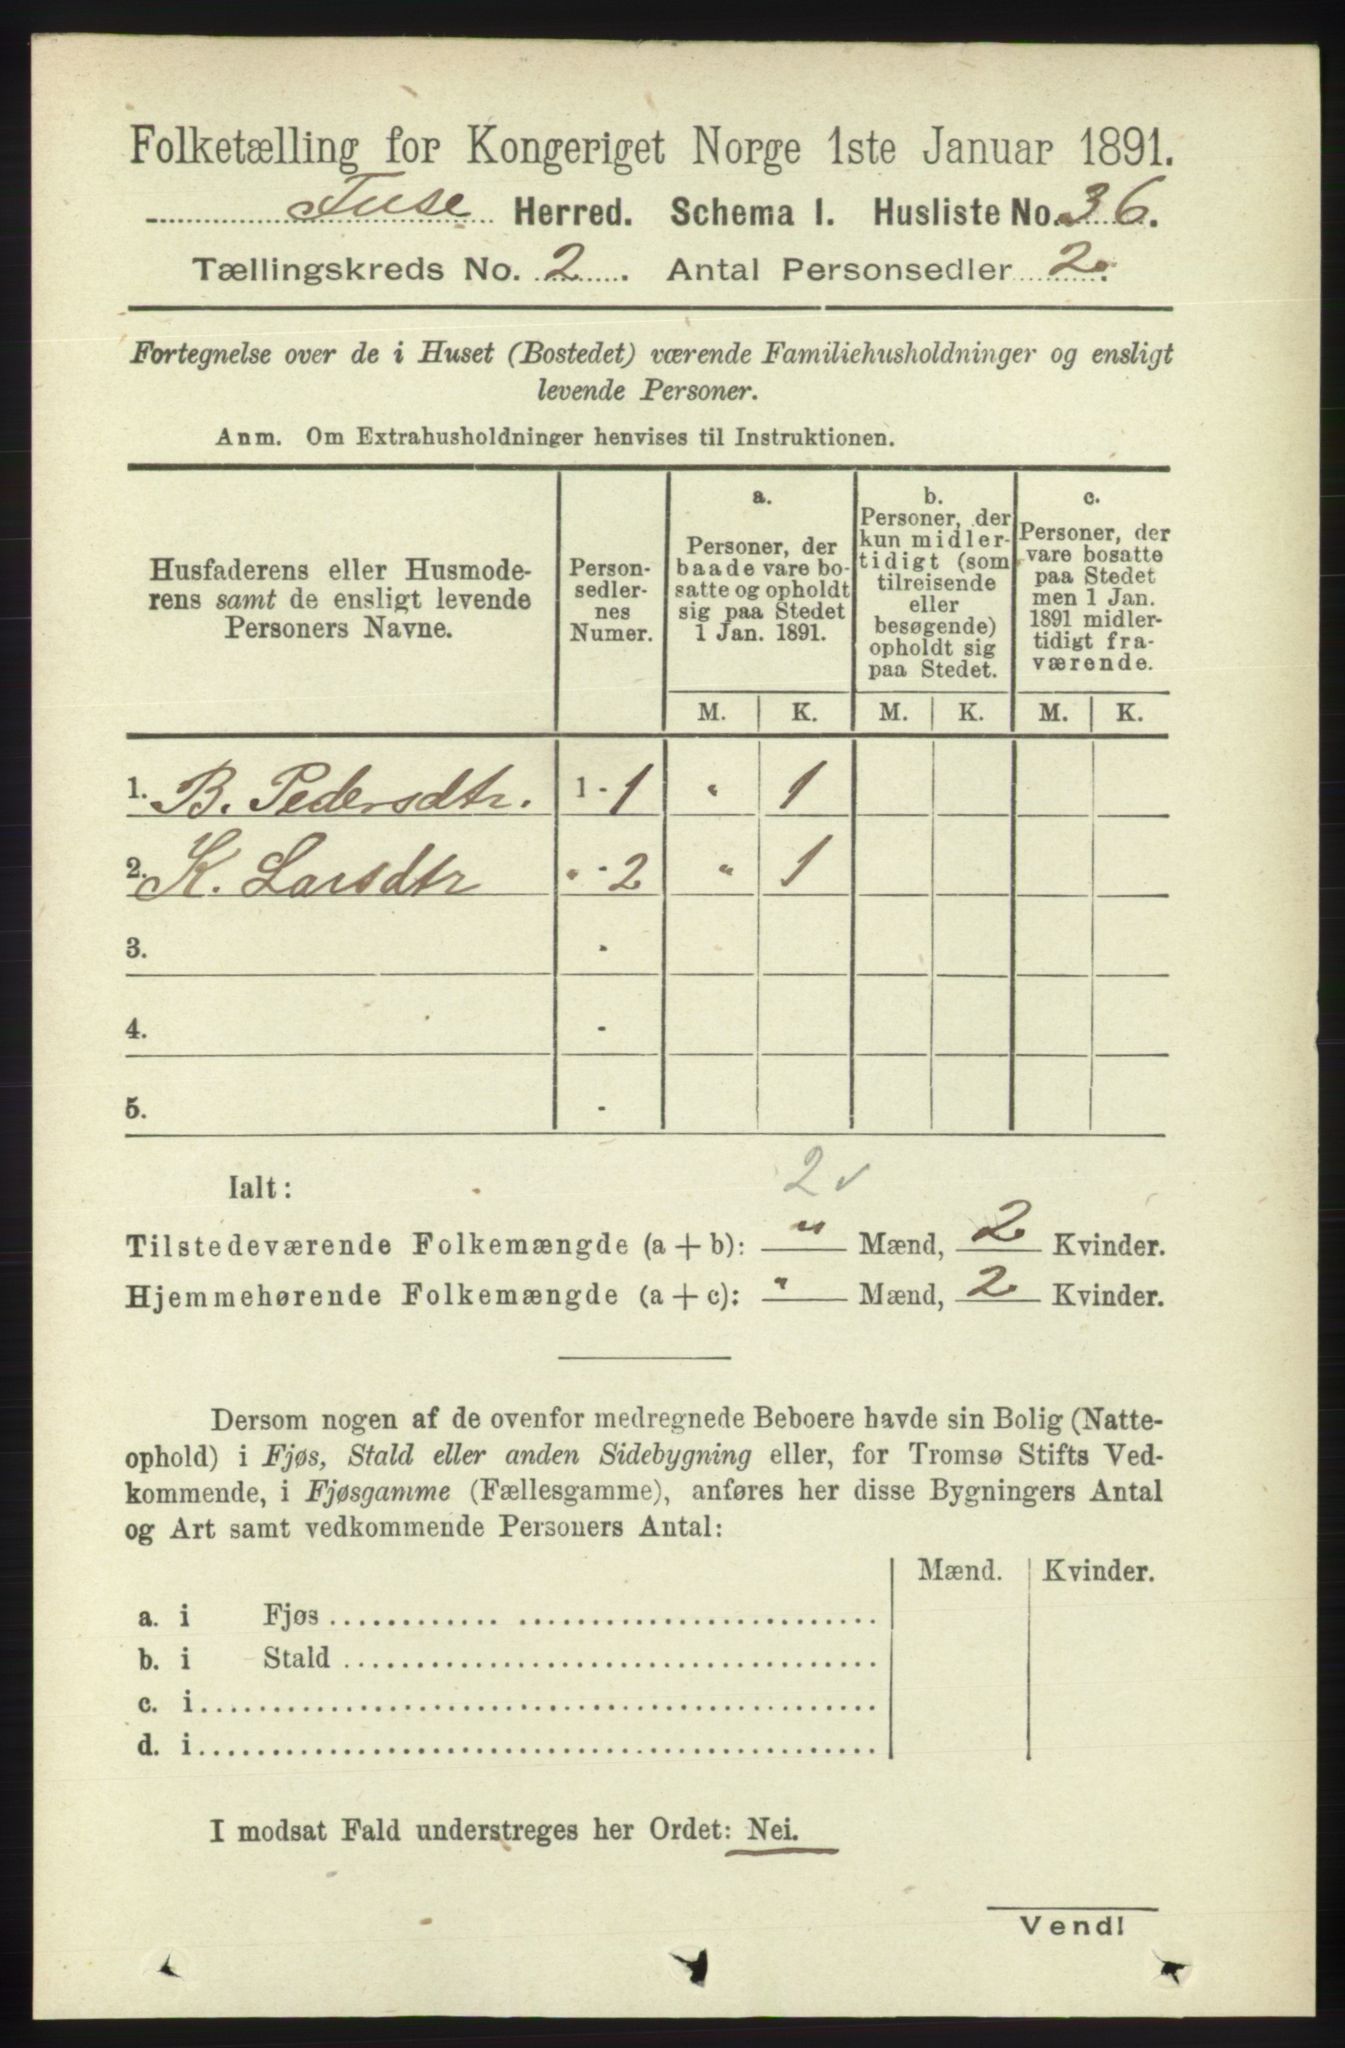 Folketælling for Kongeriget Norge 1ste Januar 1891.
Fuse Herred. Schema I. Husliste No. 36.
Tællingskreds No. 2. Antal Personsedler 2.
Fortegnelse over de i Huset (Bostedet) værende Familiehusholdninger og ensligt
levende Personer.
Anm. Om Extrahusholdninger henvises til Instruktionen.
Husfaderens eller Husmode-
rens samt de ensligt levende
Personers Navne.
Person-
sedler-
nes
Numer.
a.
Personer, der
baade vare bo-
satte og opholdt
sig paa Stedet
1 Jan. 1891.
b.
Personer, der
kun midler-
tidigt (som
tilreisende
eller
besøgende)
opholdt sig
paa Stedet.
c.
Personer, der
vare bosatte
paa Stedet
men 1 Jan.
1891 midler-
tidigt fra-
værende.
M. K. M. K. M. K.
1. B. Pedersdtr. 1 - 1 " 1
2. K. Larsdtr " - 2 " 1
3. -
4. -
5. -
2 ✓
Ialt:
Tilstedeværende Folkemængde (a + b): " Mænd, 2 Kvinder.
Hjemmehørende Folkemængde (a + c): " Mænd, 2 Kvinder.
Dersom nogen af de ovenfor medregnede Beboere havde sin Bolig (Natte-
ophold) i Fjøs, Stald eller anden Sidebygning eller, for Tromsø Stifts Ved-
kommende, i Fjøsgamme (Fællesgamme), anføres her disse Bygningers Antal
og Art samt vedkommende Personers Antal:
Mænd. Kvinder.
a. i Fjøs
b. i Stald
c. i
d. i
I modsat Fald understreges her Ordet: Nei.
Vend!